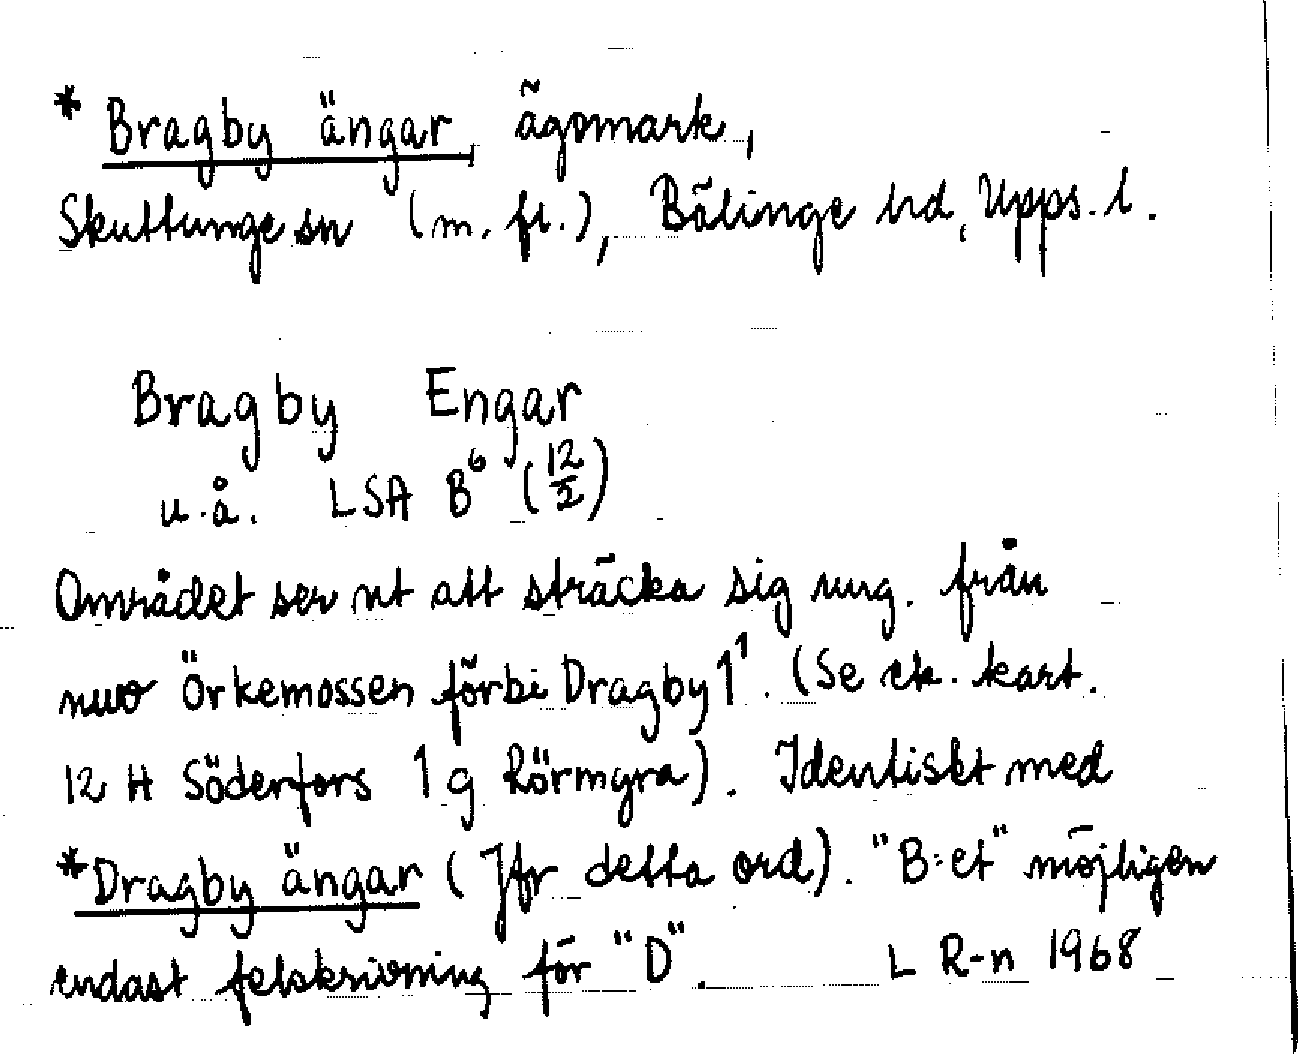 * Bragby ängar, ägomark,
Skuttunge sn (m. fl.), Bälinge hd, Upps. l.
Bragby Engar
u.å. LSA B⁶ (12/2)
Området ser ut att sträcka sig ung. från
nuv Örkemossen förbi Dragby 1¹. (Se ek. kart.
12 H Söderfors 1 g Rörmyra). Identiskt med
*Dragby ängar (Jfr detta ord). "B:et" möjligen
endast felskrivning för "D".
L R-n 1968